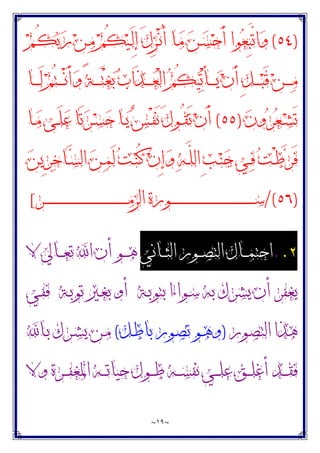 (٥٤) وَاتَّبِعُوا أَحْسَنَ مَا أُنْزِلَ إِلَيْكُمْ مِنْ رَبِّكُمْ
مِنْ قَبْلِ أَنْ يَأْتِيَكُمُ الْعَذَابُ بَغْتَةً وَأَنْتُمْ لَا
تَشْعُرُونَ (٥٥) أَنْ تَقُولَ نَفْسٌ يَا حَسْرَتَا عَلَى مَا
فَرَّطْتُ فِي جَنْبِ اللَّهِ وَإِنْ كُنْتُ لَمِنَ السَّاخِرِينَ
(٥٦)/سورة الزمر]
٠٢ احتمال التصور الثاني هو أن الله تعالى لا
يغفر أن يشرك به سواءا بتوبة أو بغير توبة ففي
هذا التصور (وهو تصور باطل) من يشرك بالله
فقد أغلق على نفسه طول حياته المغفرة ولا
~١٩~